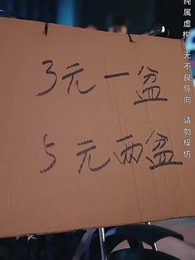 3元一盆
5元两盆
纯属虚构 无不良导向 请勿模仿